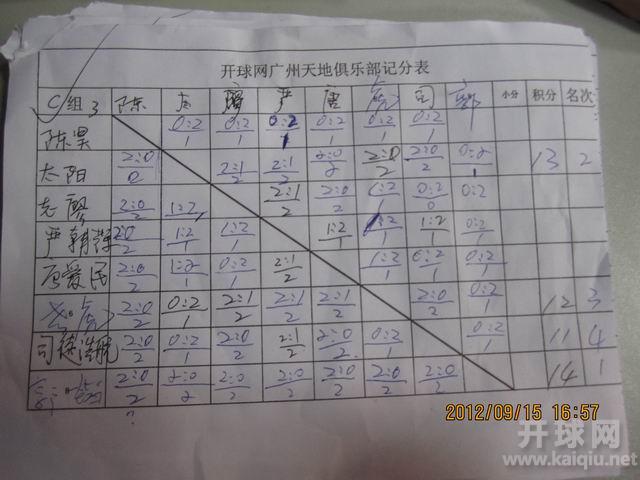 开球网广州天地俱乐部记分表
C组 3 陈 太 严 唐 司 小分 积分 名次
陈昊 0:2/1 0:2/1 0:2/1 0:2/1 0:2/1 0:2/1
太阳 2:0/2 2:1/2 2:1/2 2:0/2 2:0/2 2:0/2 0:2/1 13 2
志 2:0/2 1:2/1 2:1/2 2:0/2 1:2/1 0:2/2 0:2
严朝 2:0/2 1:2/1 1:2/1 1:2/1 1:2/1 1:2/1 0:2/1
唐爱民 2:0/2 1:2/1 0:2/1 2:1/2 1:2/1 0:2/1 0:2/1
2:0/2 0:2/1 2:1/2 2:1/2 2:1/2 2:0/2 0:2/1 12 3
司徒浩 2:0/2 0:2/1 2:0/2 2:1/2 2:0/2 0:2/1 0:2/1 11 4
2:0/2 2:0/2 2:0/2 2:0/2 2:0/2 2:0/2 2:0/2 14 1
2012/09/15 16:57
开球网
www.kaiqiu.net